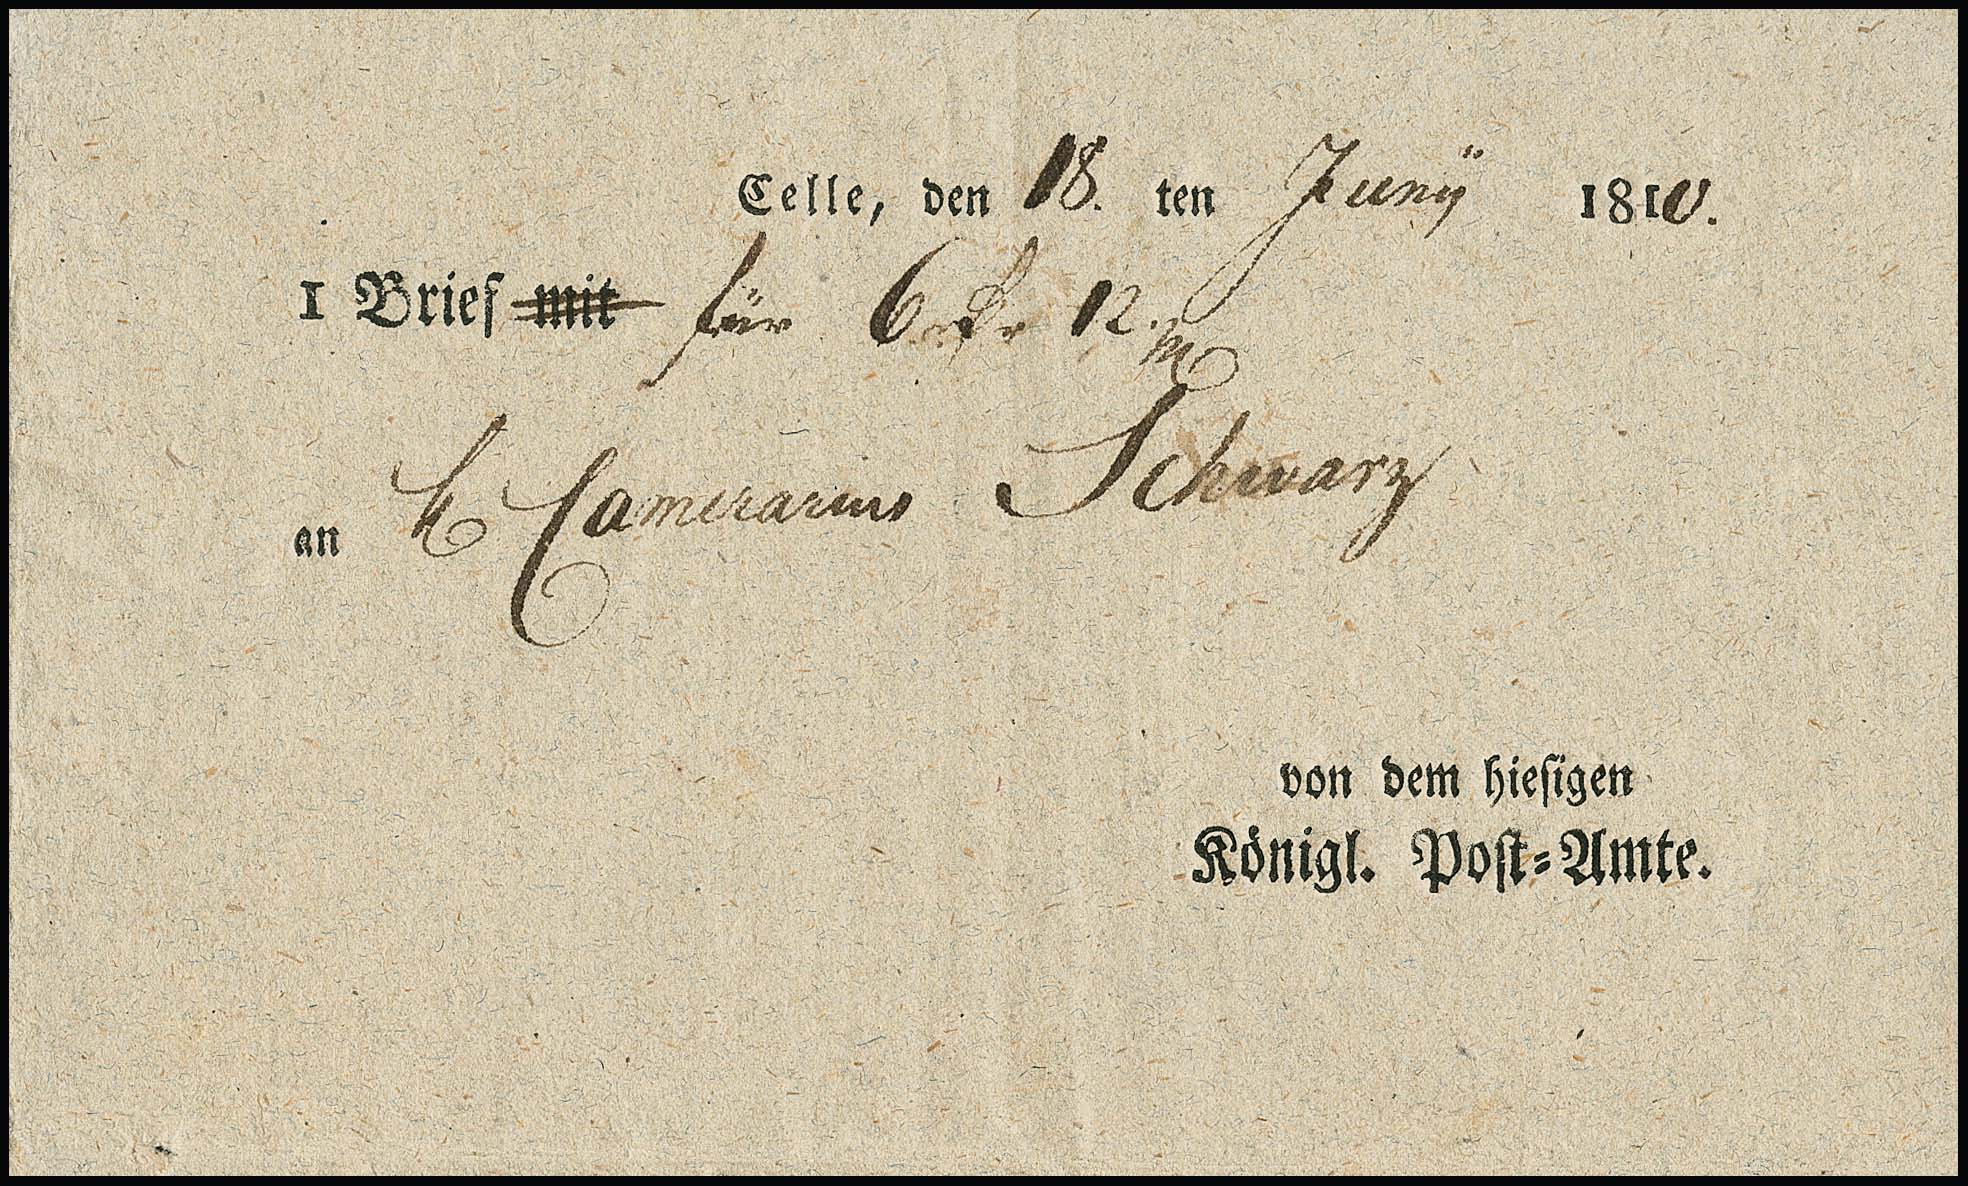 Celle, den 18. ten Juny 1810.
1 Brief mit für 6 12.
an H Camerarius Schwarz
von dem hiesigen
Königl. Post-Amte.